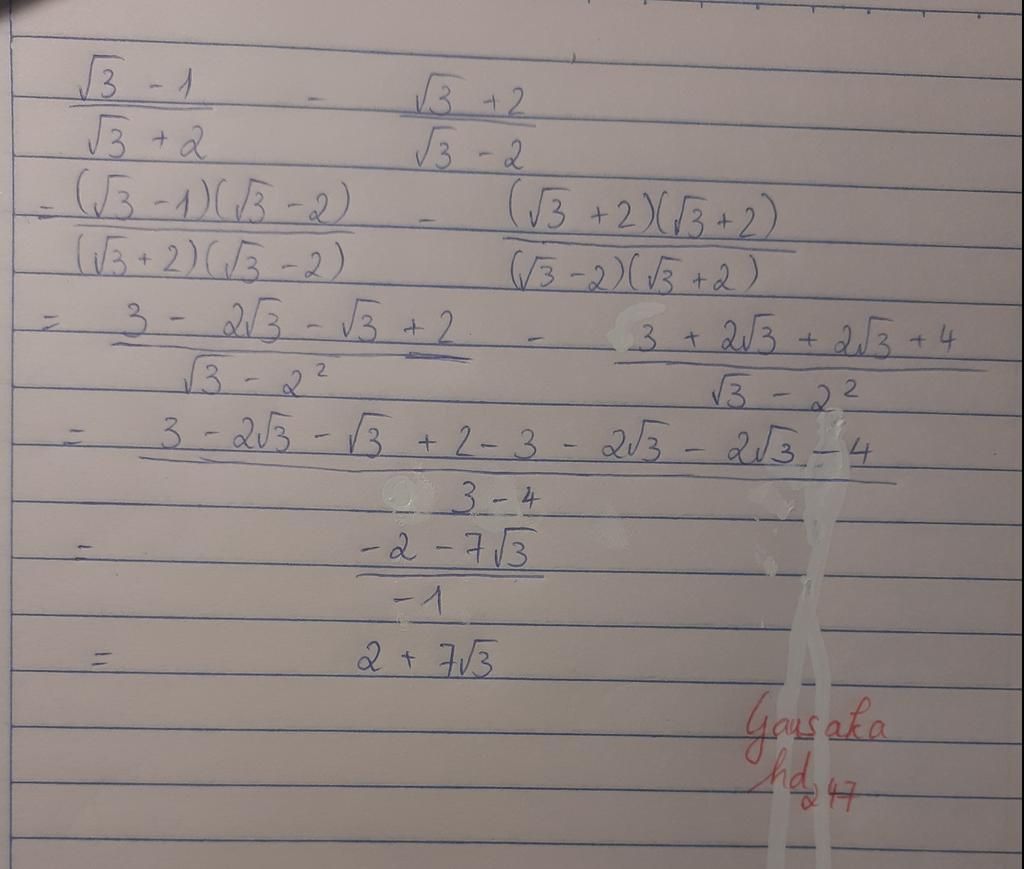 (√3 - 1)/(√3 + 2) - (√3 + 2)/(√3 - 2)
= ((√3 - 1)(√3 - 2))/((√3 + 2)(√3 - 2)) - ((√3 + 2)(√3 + 2))/((√3 - 2)(√3 + 2))
= (3 - 2√3 - √3 + 2)/(√3 - 2²) - (3 + 2√3 + 2√3 + 4)/(√3 - 2²)
= (3 - 2√3 - √3 + 2 - 3 - 2√3 - 2√3 - 4)/(3 - 4)
= (-2 - 7√3)/(-1)
= 2 + 7√3
Gausaka
hd247